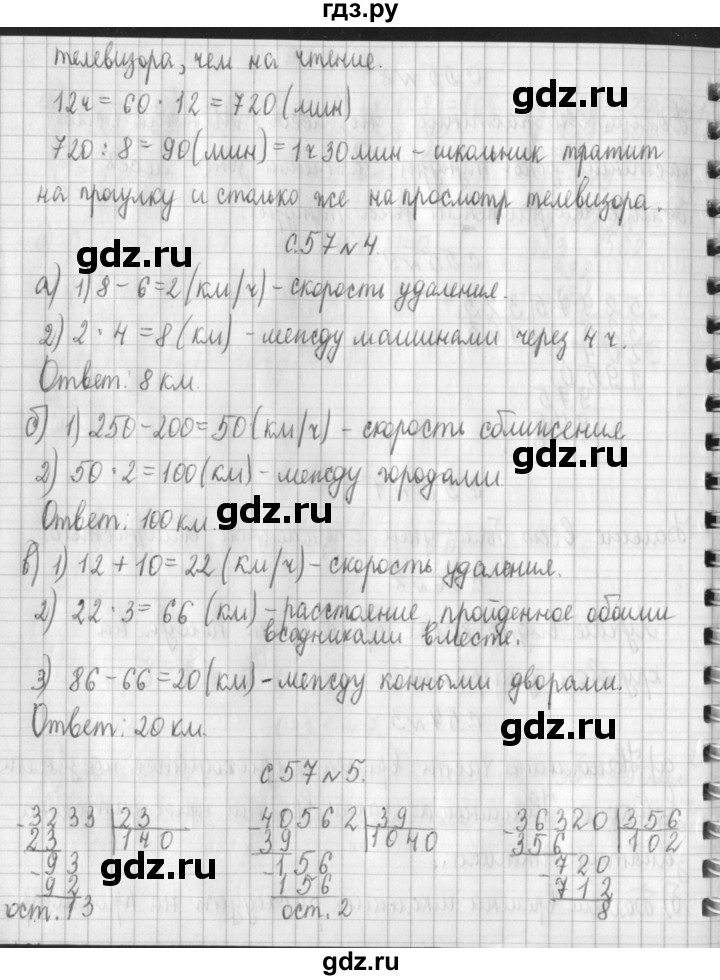 гдз.ру
телевизора, чем на чтение.
12ч = 60 · 12 = 720 (мин)
720 : 8 = 90 (мин) = 1ч 30 мин – школьник тратит
на прогулку и столько же на просмотр телевизора.
с.57 № 4
gdz.ru gdz.ru
а) 1) 8 – 6 = 2 (км/ч) – скорость удаления.
2) 2 · 4 = 8 (км) – между машинами через 4 ч.
Ответ: 8 км.
б) 1) 250 – 200 = 50 (км/ч) – скорость сближения
gdz.ru
2) 50 · 2 = 100 (км) – между городами.
Ответ: 100 км.
gdz.ru
в) 1) 12 + 10 = 22 (км/ч) – скорость удаления.
2) 22 · 3 = 66 (км) – расстояние, пройденное обоими
всадниками вместе.
3) 86 – 66 = 20 (км) – между конными дворами.
Ответ: 20 км.
gdz.ru
с.57 № 5.
3233 | 23 40562 | 39 36320 | 356
23 | 140 39 | 1040 356 | 102
93 156 720
gdz.ru
92 156 712
ост. 13 ост. 2 8
gdz.ru
gdz.ru